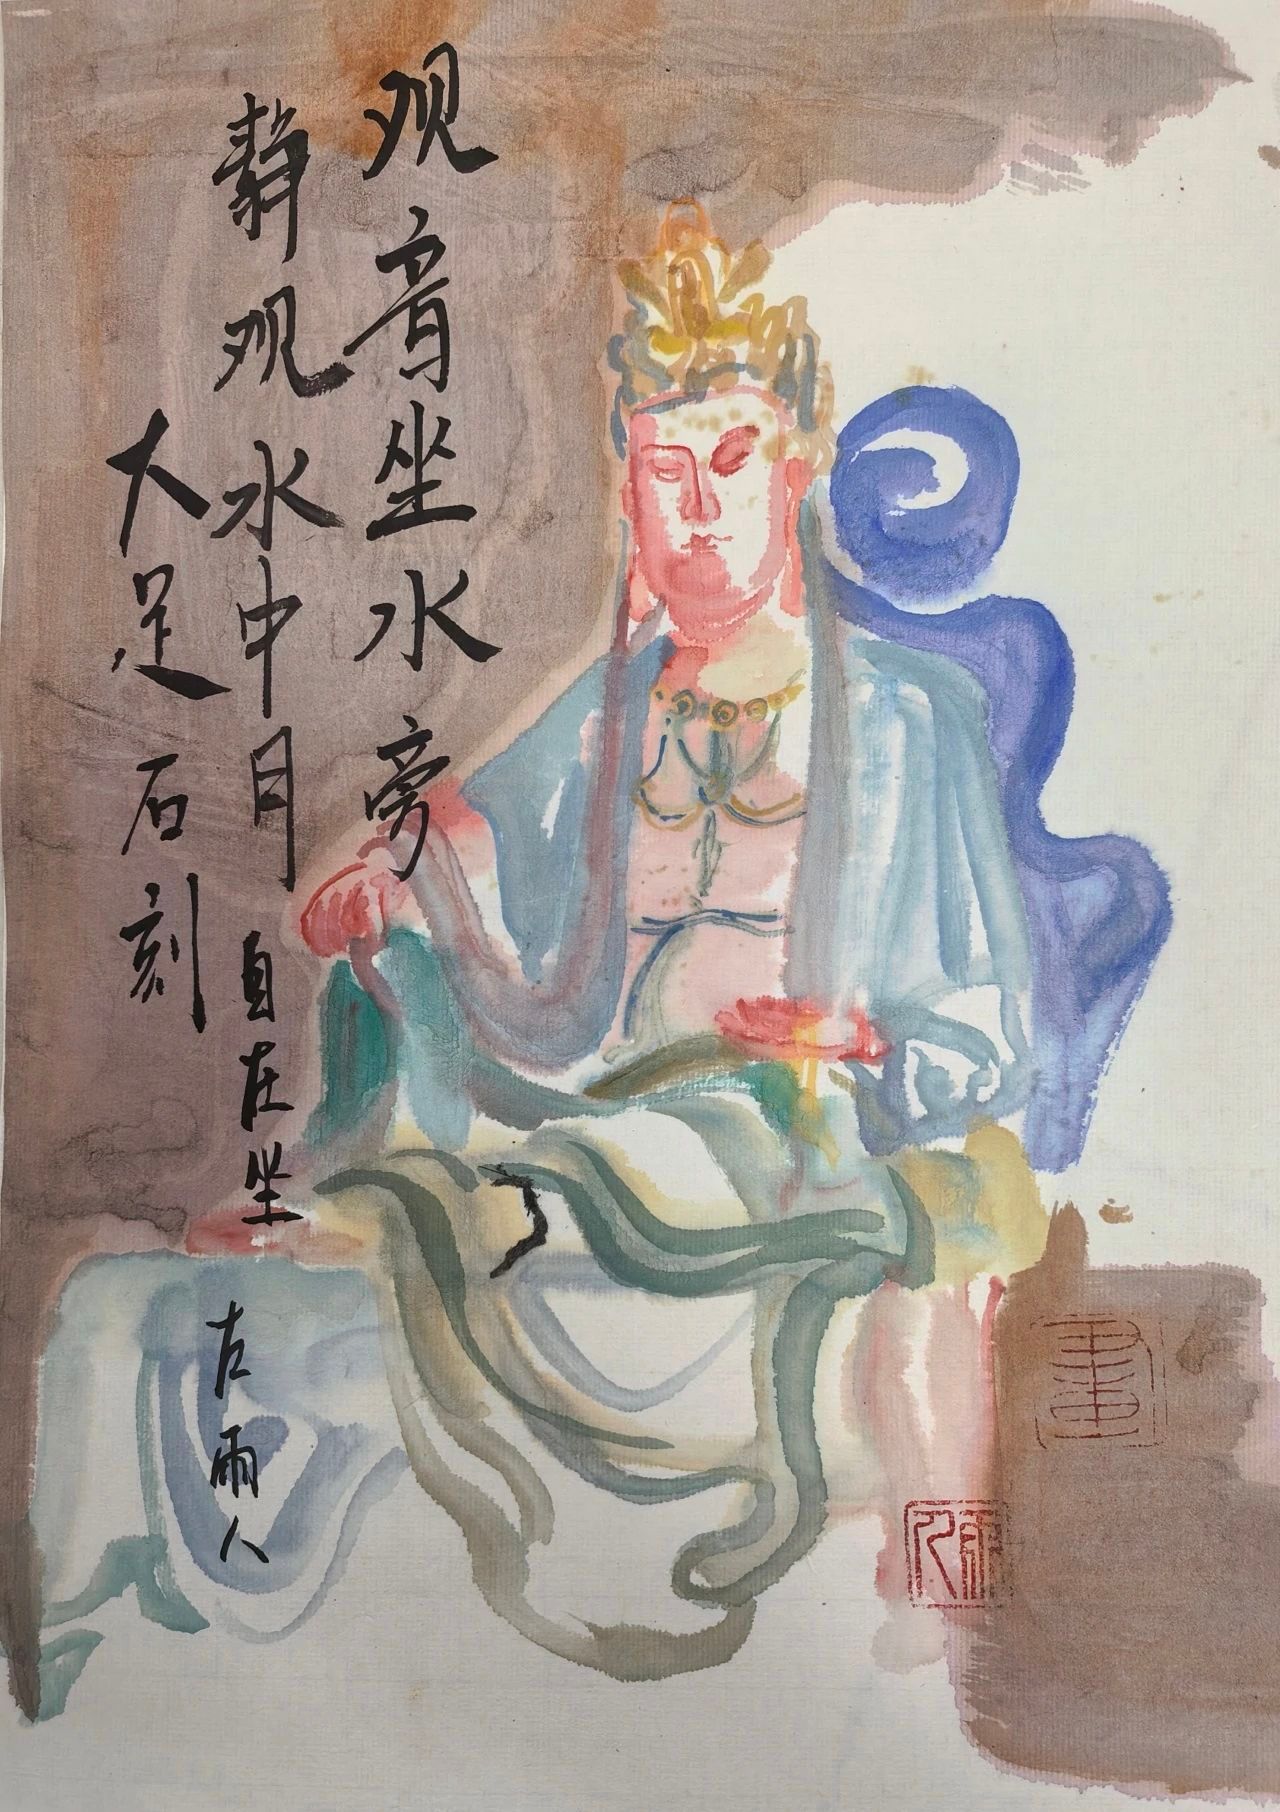 观音坐水旁
静观水中月自在坐
大足石刻
古雨人